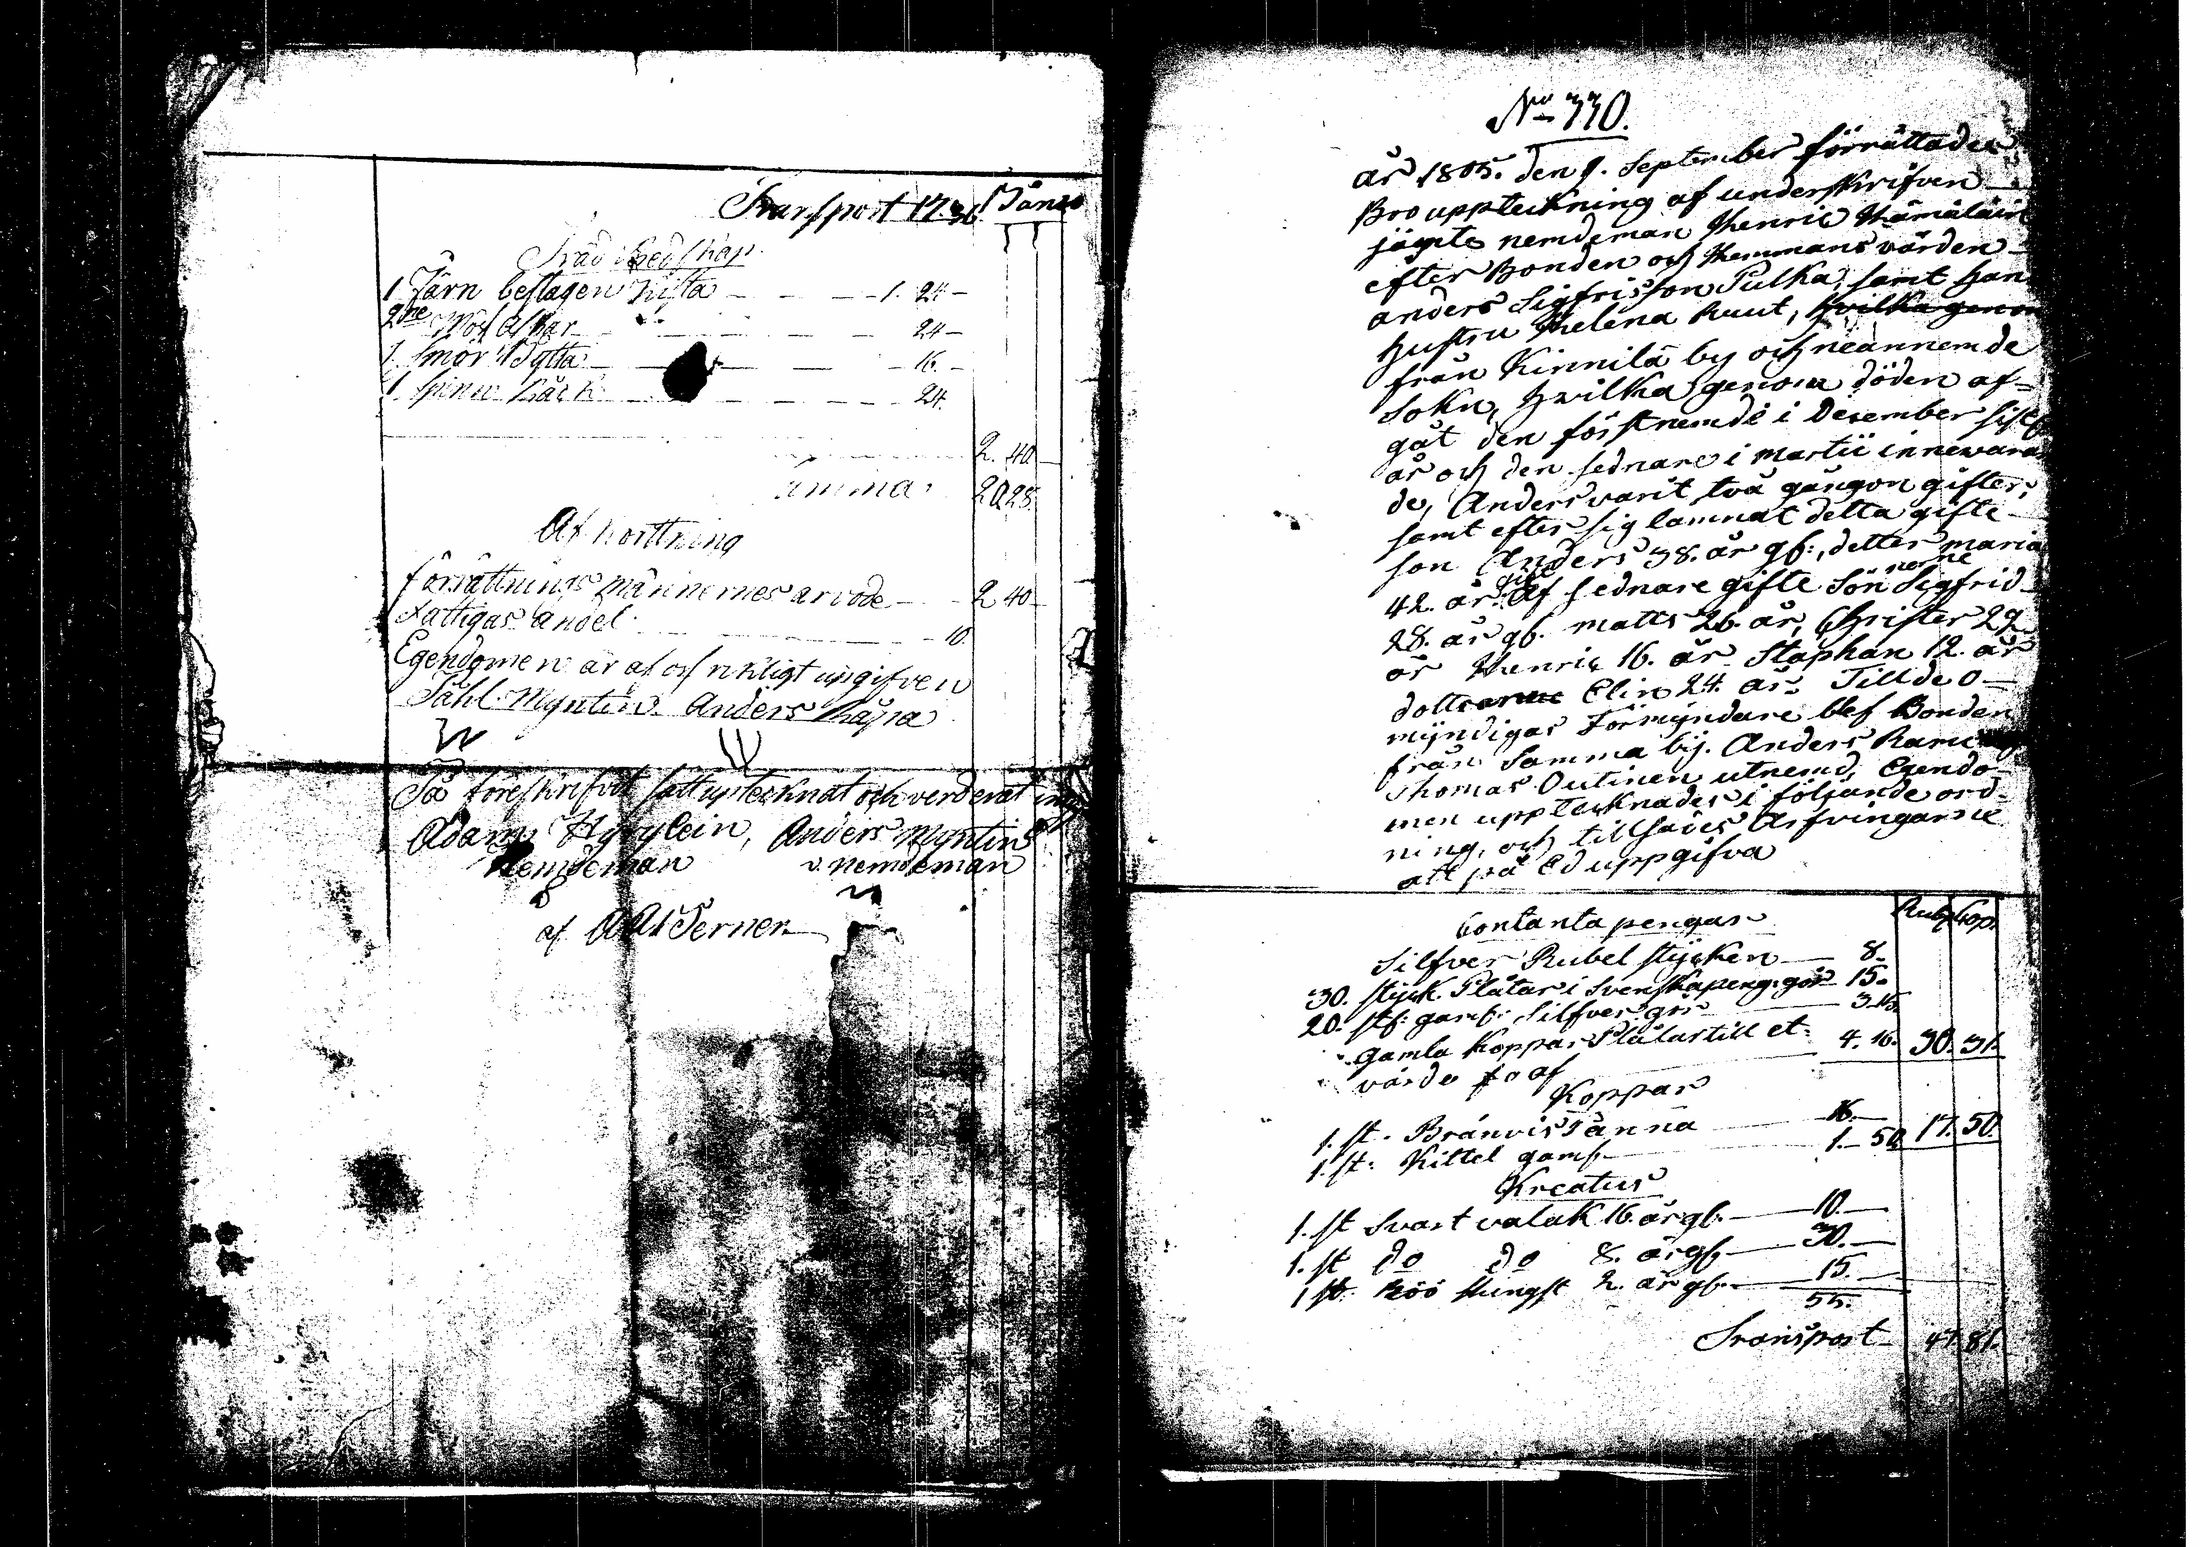 Transport 17 36
Träd Redskap
1 Järn beslagen Kista - - - 1. 24 -
2ne - - - 24 -
1. Smör Bytta - - - 16. -
1 Spinn Råck - - - 24.
2. 40
Summa 20 28
Afkorttning
förrättnings männernes arvode - - 2 40
Fattigas andel - - 10.
Egendomen är af oss rikligt upgifven
Påhl Myntin. Anders
Så föreskrifvet satt uptecknat och verderat
Adam Hyvylein, Anders Myntin
Nemdeman v. nemdeman
af Ad Ferner
No 330.
år 1805. den 9. September förrättades
Bro uppteckning af underskrifven
jämte nemdeman Henric Hämäläin
efter Bonden och Hemmans värden
anders Sigfrisson Pulka, samt han
hustru Helena Ruut,
från Kinnilä by och neannemde
Sokn, hvilka genom döden af-
gåt den förstnemde i December sistl
år och den sednare i martii innewaran
de, Anders varit två gångor gifter,
samt efter sig lamnat detta gifte
son Anders 38. år gl:, detter maria
42. år. gift Af sednare gifte Sönnerne Sigfrid
28. år gl. matts 26. år, Christer 22
år Henric 16. år Staphan 12. år
dotter Elin 24. år. Till de o-
myndigas Förmyndare blef Bonden
från Samma by. Anders
Thomas Outinen utnemd, Egendo-
men upptecknades i följande ord-
ning, och tillsades Arfvingarne
att på Ed uppgifva
Contanta pengar Rub Kop.
Silfver Rubel stycken - 8-
30. styck. Plåtar i Svenska peng. gör 15.
20. st: gaml: Silfver gör - 3.15.
gamla Koppar Plåtar till et:
värde fo af 4. 16. 30. 31.
Koppar
1. st. Bränvis Panna - 16. -
1. st: Kittel gaml. - 1. - 50 17. 50.
Kreatur
1. st Svart valak 16. år gl. - 10. -
1. st do do 8. år gl. - 30. -
1 st Röö Hingst 2. år gl. - 15. -
55.
Transport 47. 81.